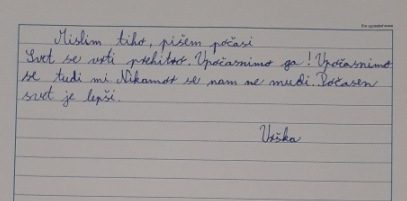 Mislim tiho, pišem počasi
Svet se vrti prehitro. Upočasnimo ga! Upočasnimo
se tudi mi. Nikamor se nam ne mudi. Počasen
svet je lepši.
Urška